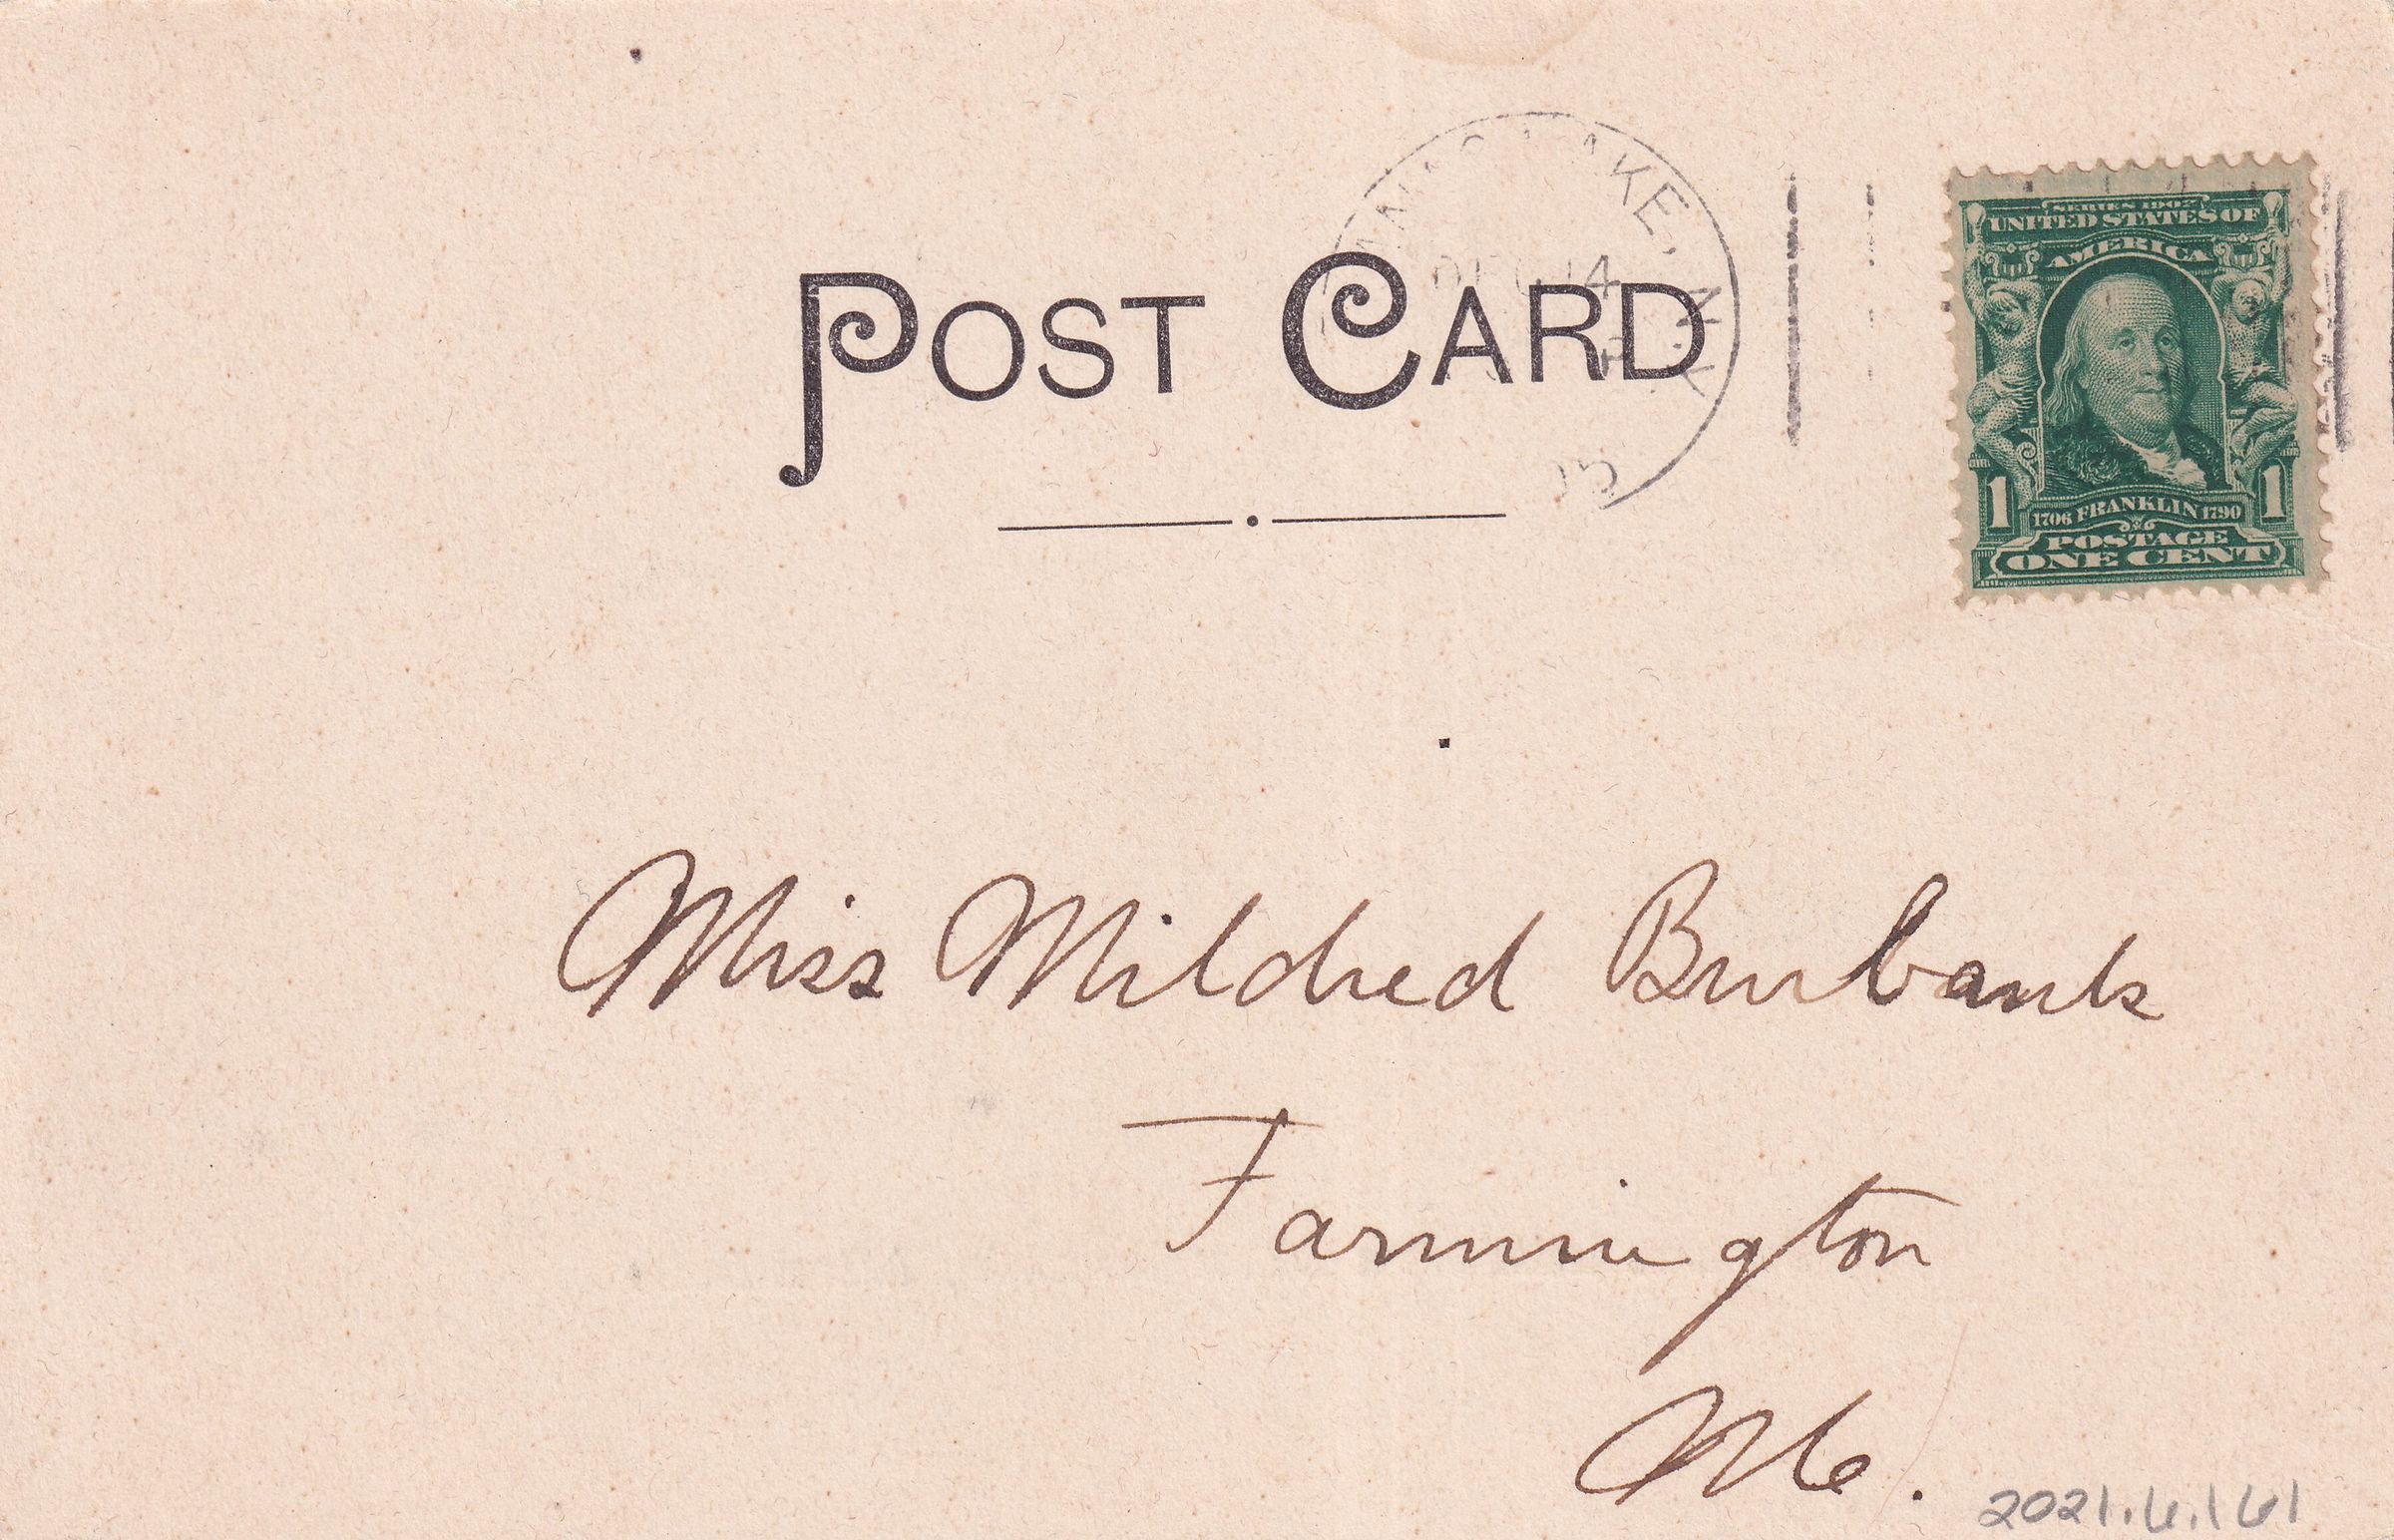 POST CARD
AKE, N.Y.
DEC 14
SERIES 1902
UNITED STATES OF
AMERICA
1 1706 FRANKLIN 1790 1
POSTAGE
ONE CENT
Miss Mildred Burbank
Farmington
Me.
2021.6.161